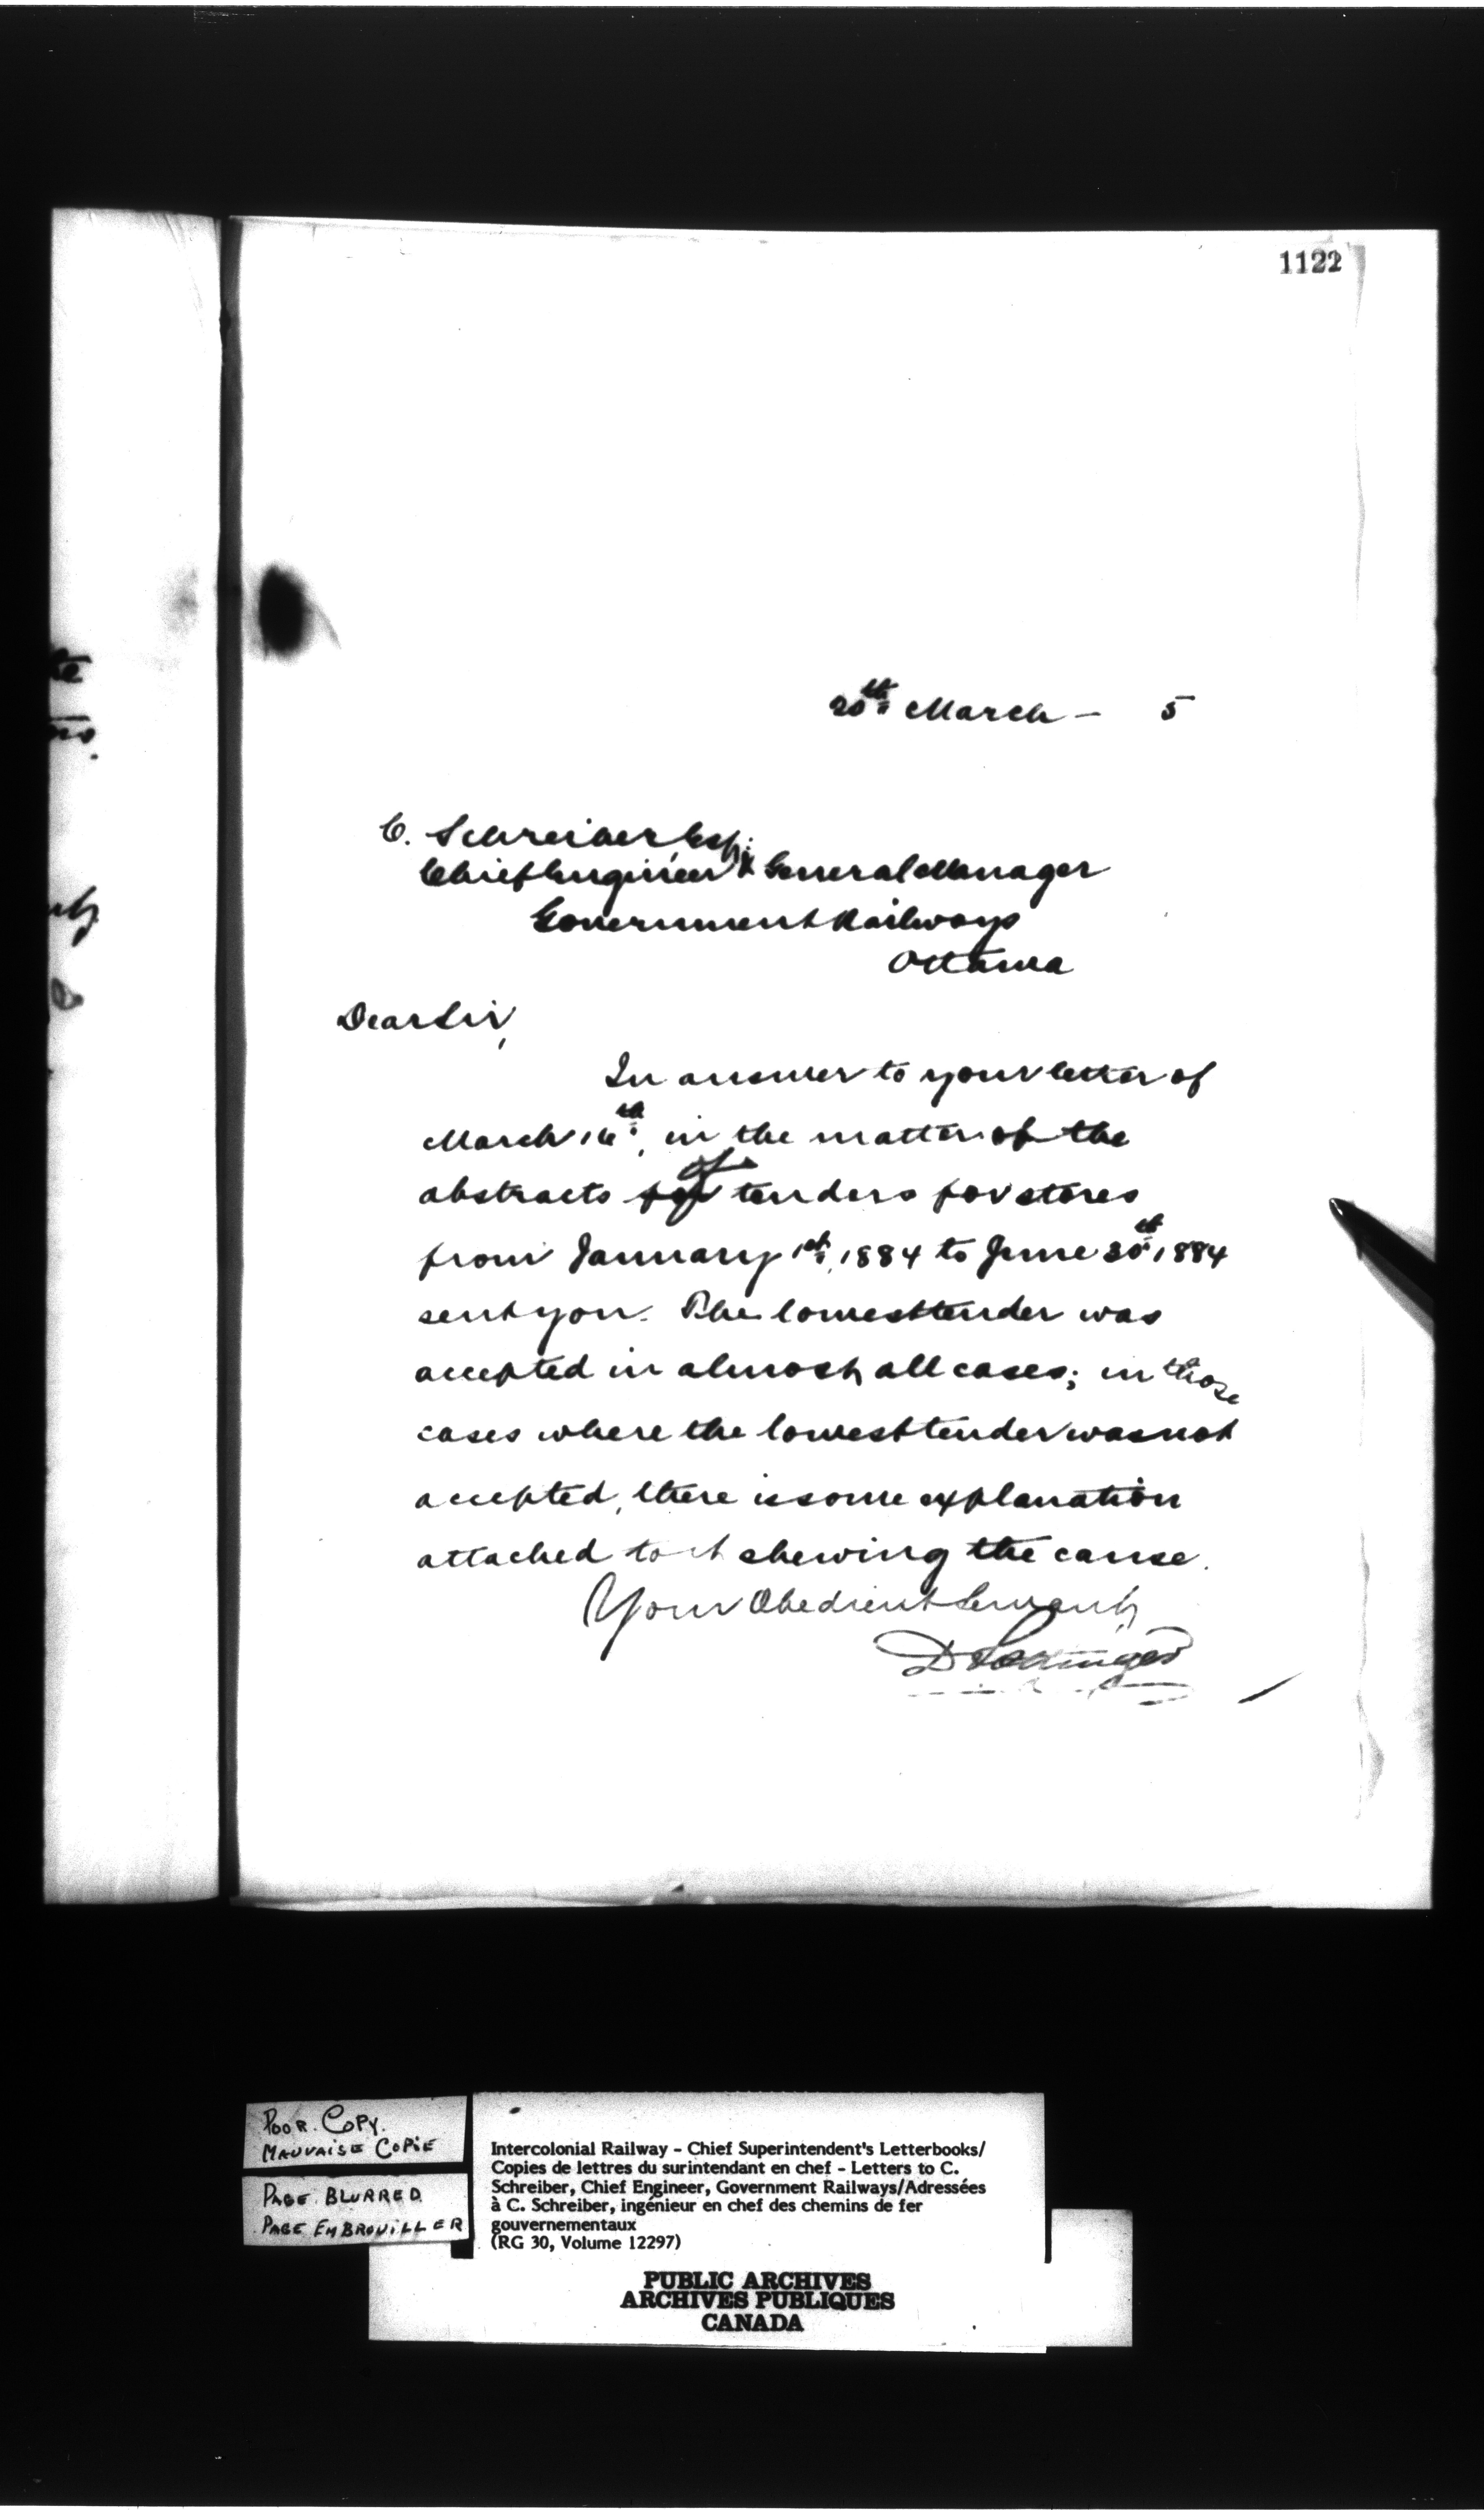 1122
20th March - 5
C. Schreiber Esq:
Chief Engineer & General Manager
Government Railways
Ottawa
Dear Sir,
In answer to your letter of
March 16th, in the matter of the
abstracts of tenders for stores
from January 1st, 1884 to June 30th 1884
sent you. The lowest tender was
accepted in almost all cases; in those
cases where the lowest tender was not
accepted, there is some explanation
attached to it shewing the cause.
Your Obedient Servant
D Pottinger
POOR COPY.
MAUVAISE COPIE
PAGE BLURRED
PAGE EMBROUILLER
Intercolonial Railway - Chief Superintendent's Letterbooks/
Copies de lettres du surintendant en chef - Letters to C.
Schreiber, Chief Engineer, Government Railways/Adressées
à C. Schreiber, ingénieur en chef des chemins de fer
gouvernementaux
(RG 30, Volume 12297)
PUBLIC ARCHIVES
ARCHIVES PUBLIQUES
CANADA